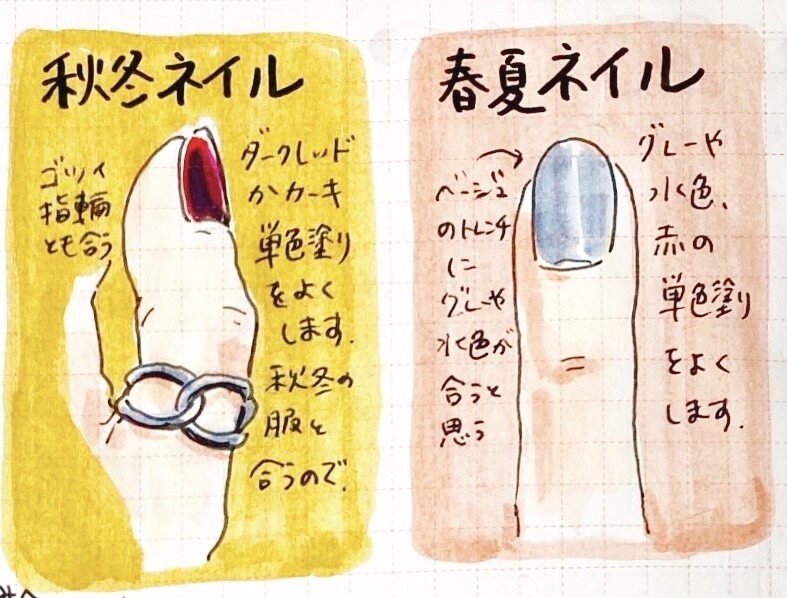 秋冬ネイル
ゴツイ
指輪
とも合う
ダークレッド
かカーキ
単色塗り
をよく
します.
秋冬の
服と
合うので.
春夏ネイル
ベージュ
のトレンチ
に
グレーや
水色が
合うと
思う
グレーや
水色、
赤の
単色塗り
をよく
します.